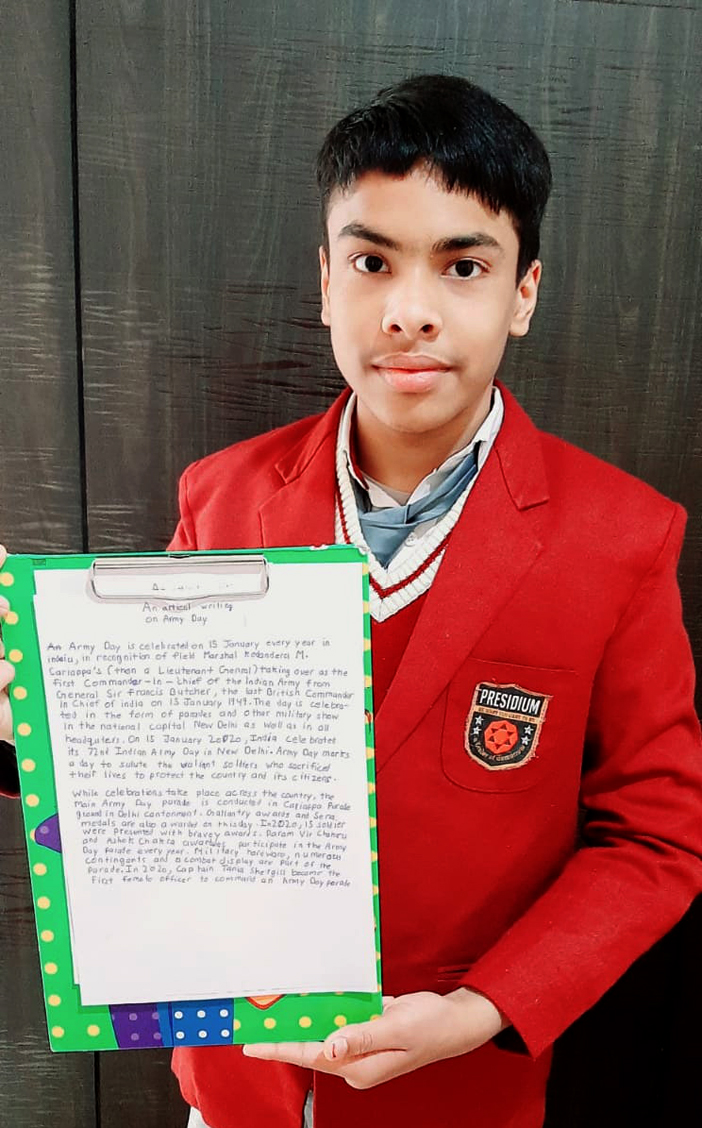 An artical writing
on Army Day
An Army Day is celebrated on 15 January every year in
india, in recognition of field Marshal Kodandera M.
Cariappa's (then a Lieutenant General) taking over as the
first Commander-In-Chief of the Indian Army from
General Sir francis Butcher, the last British Commander
In Chief of india on 15 January 1949. The day is celebra-
ted in the form of parades and other military show
in the national capital New Delhi as well as in all
headquters. On 15 January 2020, India celebrated
its 72nd Indian Army Day in New Delhi. Army Day marks
a day to salute the valiant soldiers who sacrificed
their lives to protect the country and its citizens.
While celebrations take place across the country, the
Main Army Day parade is conducted in Cariappa Parade
ground in Delhi cantonment. Gallantry awards and Sena
medals are also awarded on this day. In 2020, 15 soldier
were presented with bravey awards. Param Vir Chakra
and Ashok Chakra awardees participate in the Army
Day parade every year. Military hardware, numerous
contingents and a combat display are part of the
parade. In 2020, Captain Tania Shergill became the
first female officer to command an Army Day parade
PRESIDIUM